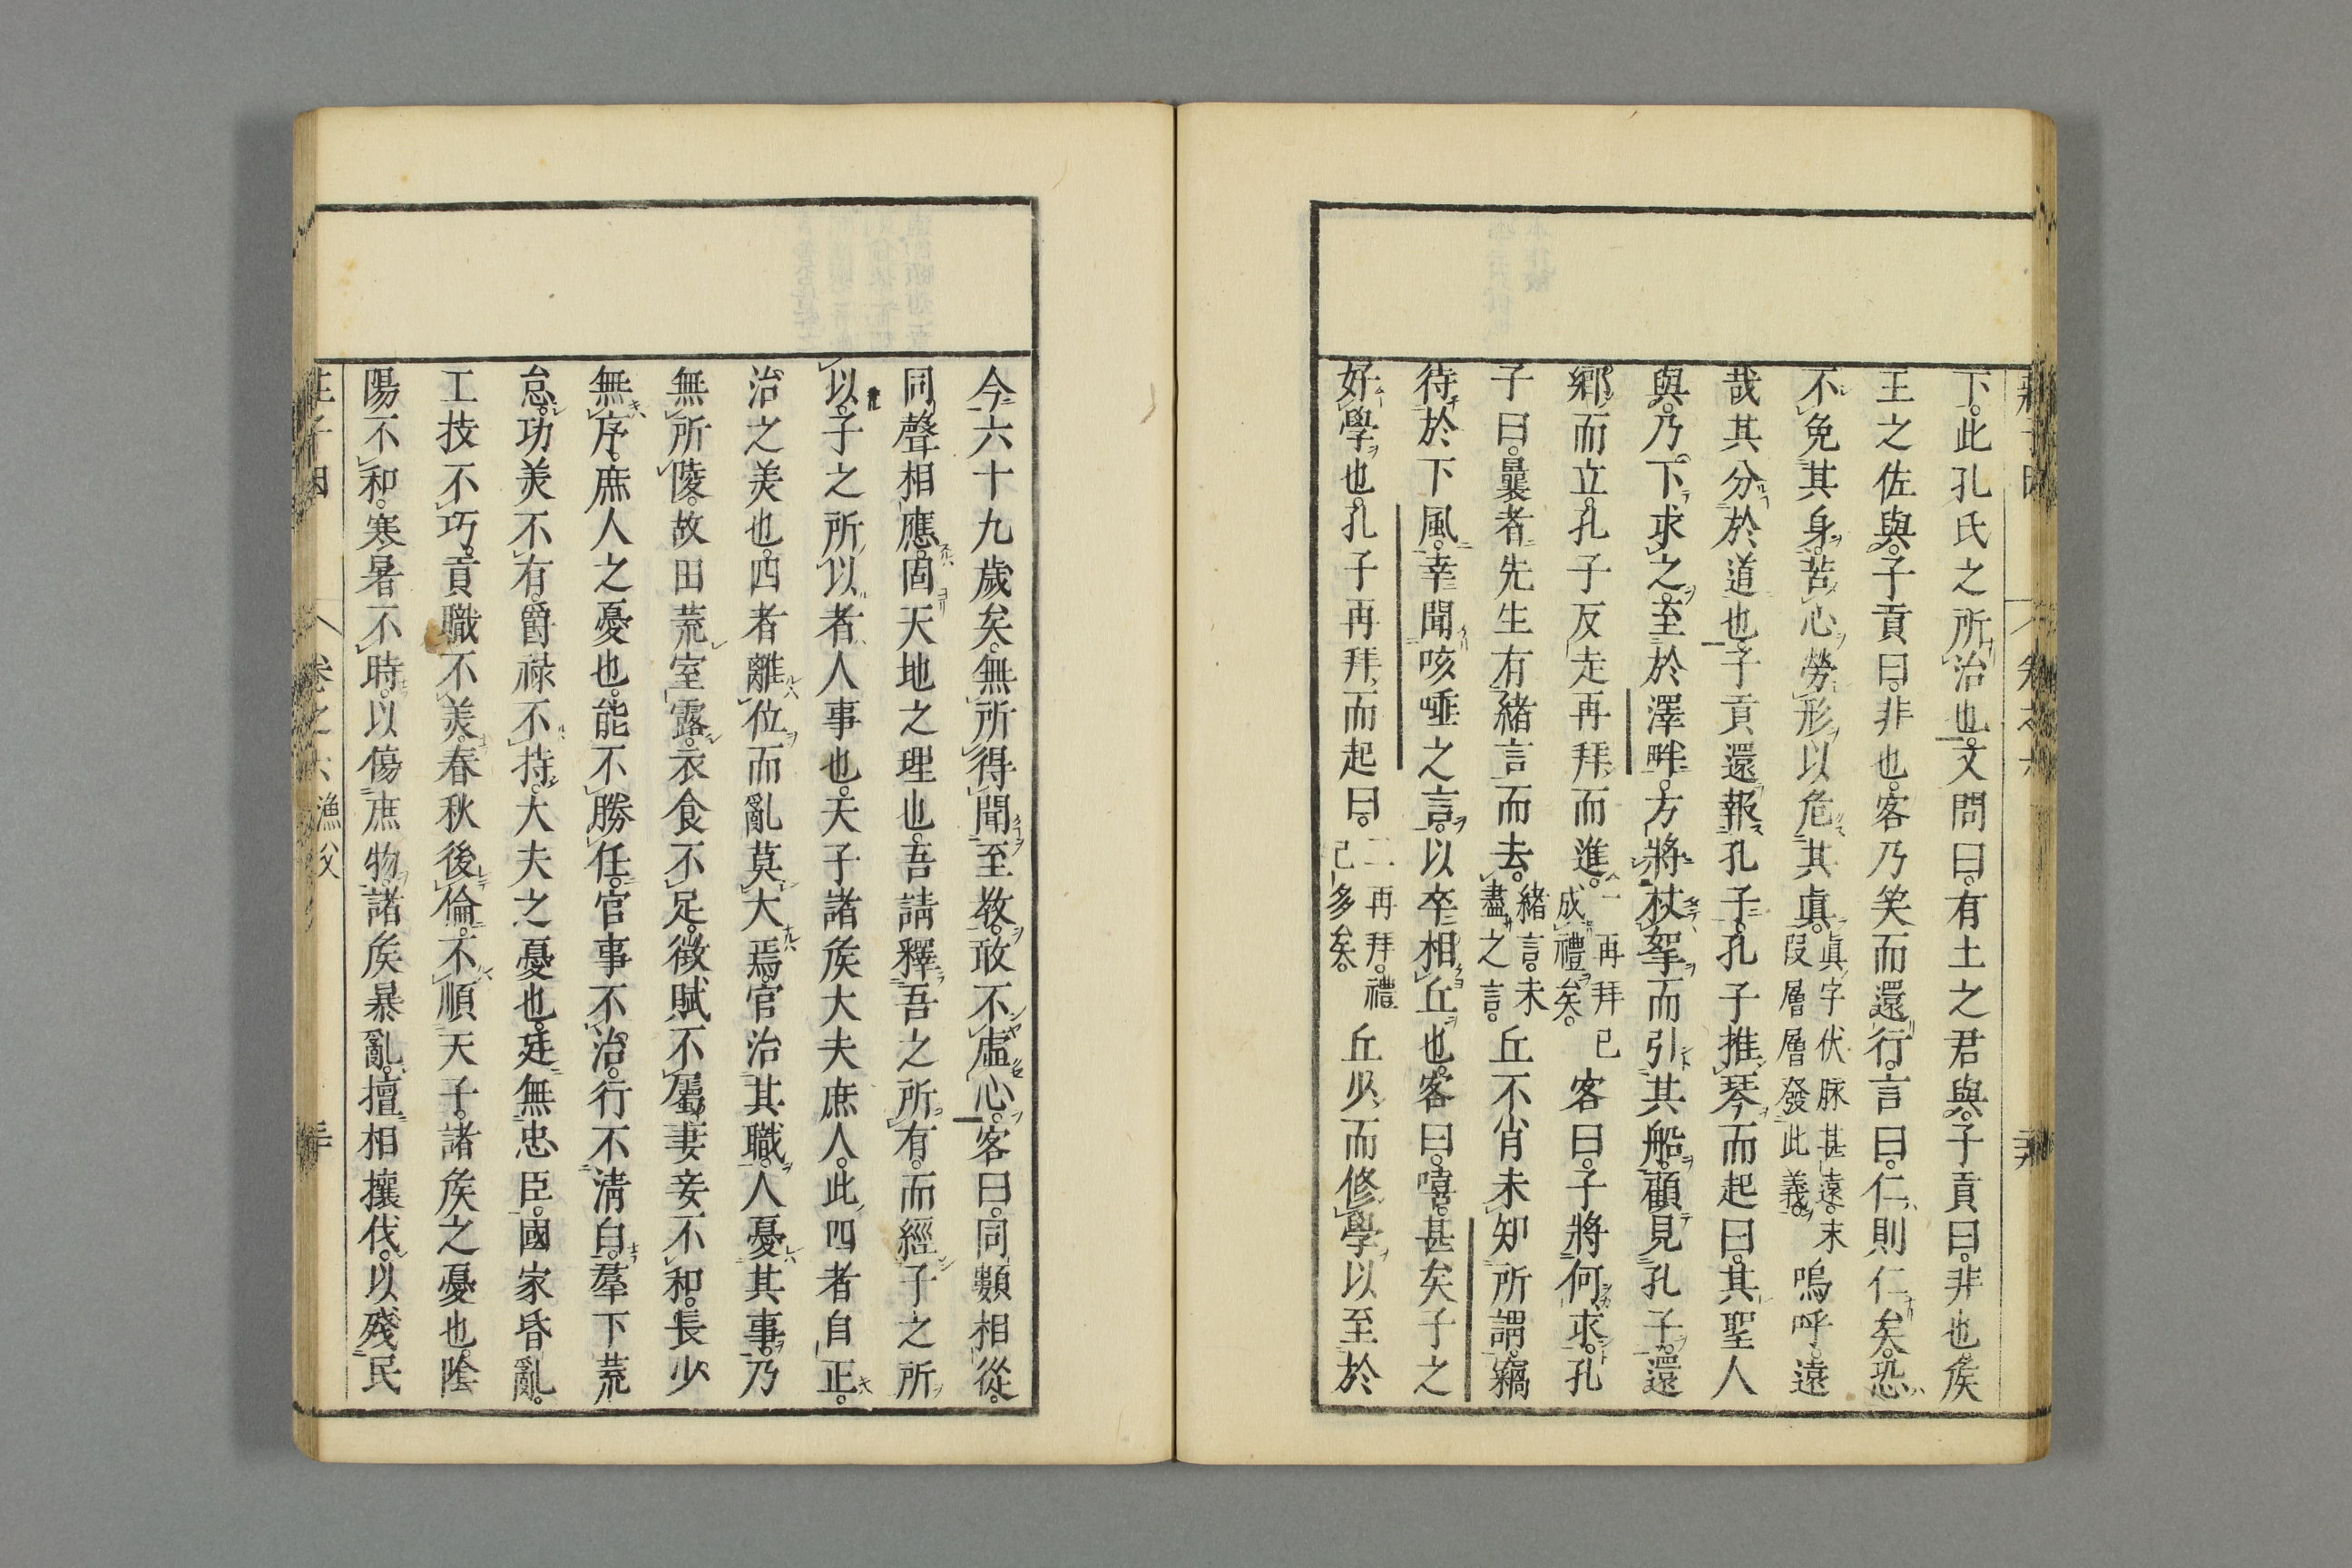 下。此孔氏之所治也。又問曰。有土之君與。子貢曰。非也。矦
王之佐與。子貢曰。非也。客乃笑而還行。言曰。仁則仁矣。恐
不免其身。苦心勞形以危其眞。眞字伏脉甚遠。末段層層發此義。嗚呼。遠
哉其分於道也。子貢還報孔子。孔子推琴而起曰。其聖人
與。乃下求之。至於澤畔。方將杖挐而引其船。顧見孔子。還
鄉而立。孔子反走再拜而進。一再拜已成禮矣。客曰。子將何求。孔
子曰。曩者先生有緒言而去。緒言。未盡之言。丘不肖未知所謂。竊
待於下風。幸聞咳唾之言。以卒相丘也。客曰。嘻。甚矣子之
好學也。孔子再拜而起曰。二再拜。禮已多矣。丘少而修學以至於
今六十九歲矣。無所得聞至敎。敢不虛心。客曰。同類相從。
同聲相應。固天地之理也。吾請釋吾之所有。而經子之所
以。子之所以者人事也。天子諸矦大夫庶人。此四者自正。
治之美也。四者離位而亂莫大焉。官治其職。人憂其事。乃
無所陵。故田荒室露。衣食不足。徵賦不屬。妻妾不和。長少
無序。庶人之憂也。能不勝任。官事不治。行不淸白。羣下荒
怠。功美不有。爵祿不持。大夫之憂也。廷無忠臣。國家昏亂。
工技不巧。貢職不美。春秋後倫。不順天子。諸矦之憂也。陰
陽不和。寒暑不時。以傷庶物。諸矦暴亂。擅相攘伐。以殘民
莊子因　卷之六　漁父